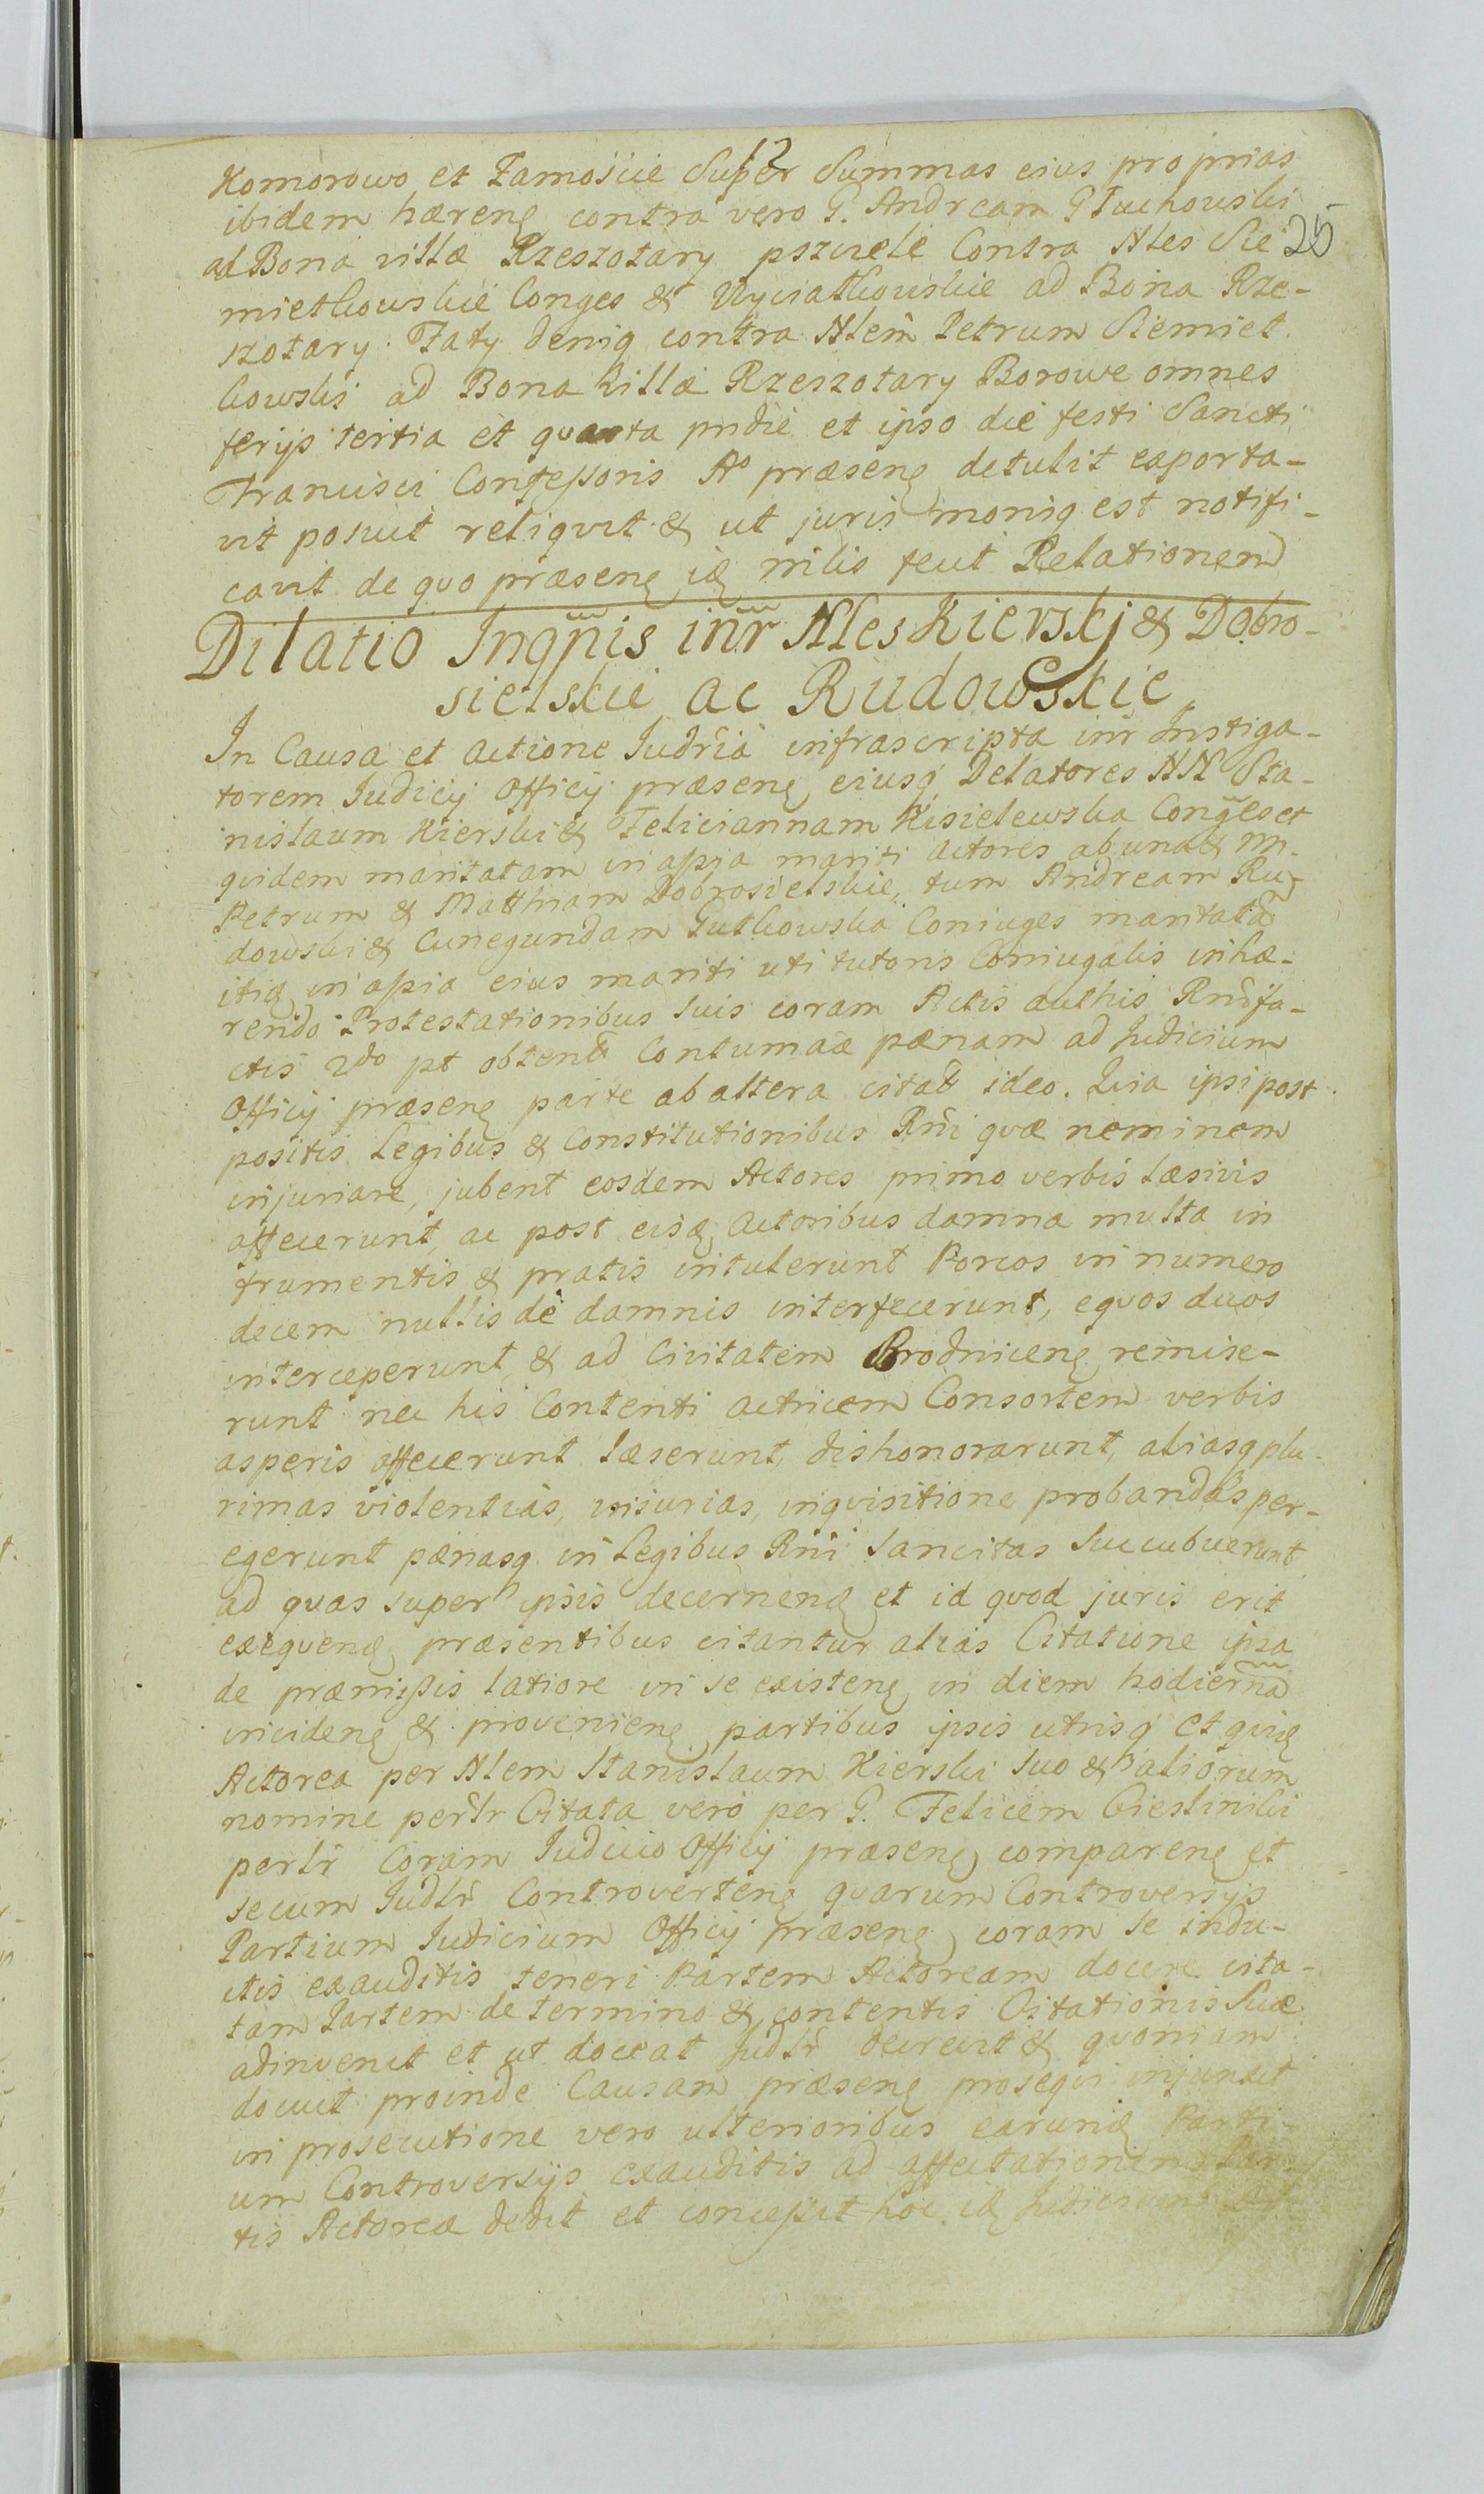 12
Komorowo et Zamoście Super Summas eius proprias
ibidem hærenꝫ contra vero G. Andream Głuchowski
25
ad Bona villæ Rzeszotary pszciele Contra Nles Sie
mietkowskie Conges & Wyciatkowskie ad Bona Rze-
szotary Faty deniq contra Nlem Petrum Siemiet
kowski ad Bona Villæ Rzeszotary Borowe omnes
ferijs tertia et quarta pridie et ipso die festi Sancti
Francisci Confeßoris Ao præsenꝫ detulit exporta-
vit posuit reliqvit & ut juris moniq est notifi-
cavit de quo præsenꝫ idꝫ mlis fecit Relationem
Dilatio Inqpnis inr Nles Kierskj & Dobro-
sielskie ac Rudowskie
In Causa et actione Judria infrascripta inr Instiga-
torem Judicij Officij præsenꝫ eiusq Delatores NN Sta-
nislaum Kierski & Feliciannam Kisielewska Conges et
quidem maritatam in aßia mariti actores ab una & M.
Petrum & Matthiam Dobrosielskie, tum Andream Ru-
dowski & Cunegundam Gutkowska Coniuges maritata
itidꝫ in aßia eius mariti uti tutoris Coniugalis inhæ-
rendo Protestationibus suis coram Actis authis Rndfa-
ctis 2do pt obtent Contumaæ pænam ad Judicium
Officij præsenꝫ parte ab altera citat ideo. Quia ipsi post
positis Legibus & Constitutionibus Rni quæ neminem
injuriare, jubent eosdem Actores primo verbis læsivis
affecerunt, ac post eisdꝫ Actoribus damna multa in
frumentis & pratis intulerunt Porcos in numero
decem nullis de damnis interfecerunt, equos duos
interceperunt & ad Civitatem Brodnicenꝫ remise-
runt nec his Contenti actricem Consortem verbis
asperis affecerunt læserunt, dishonorarunt, aliasq plu-
rimas violentias, injurias, inquisitione probandas per-
egerunt pænasq in Legibus Rni sancitas succubuerunt
ad quas super ipsis decernendꝫ et id quod juris erit
exequendꝫ præsentibus citantur alias Citatione ipsa
de præmißis latiore in se existenꝫ in diem hodierna
incidenꝫ & provenienꝫ partibus ipsis utrisq et quidꝫ
Actorea per Nlem Stanislaum Kierski suo & aliorum
nomine perlr Citata vero per G. Felicem Cieslinski
perlr Coram Judicio Officij præsenꝫ comparenꝫ et
secum Judlr Controvertenꝫ quarum Controversijs
Partium Judicium Officij præsenꝫ coram se indu-
ctis exauditis teneri Partem Actoream docere cita-
tam Partem de termino & contentis Citationis Suæ
adinvenit et ut doceat Judlr decrevit & quoniam
docuit proinde Causam præsenꝫ prosequi injunxit
in prosecutione vero ulterioribus earundꝫ Parti-
um Controversijs exauditis ad affectationem Par-
tis Actoreæ dedit et conceßit hoc idꝫ Judicium